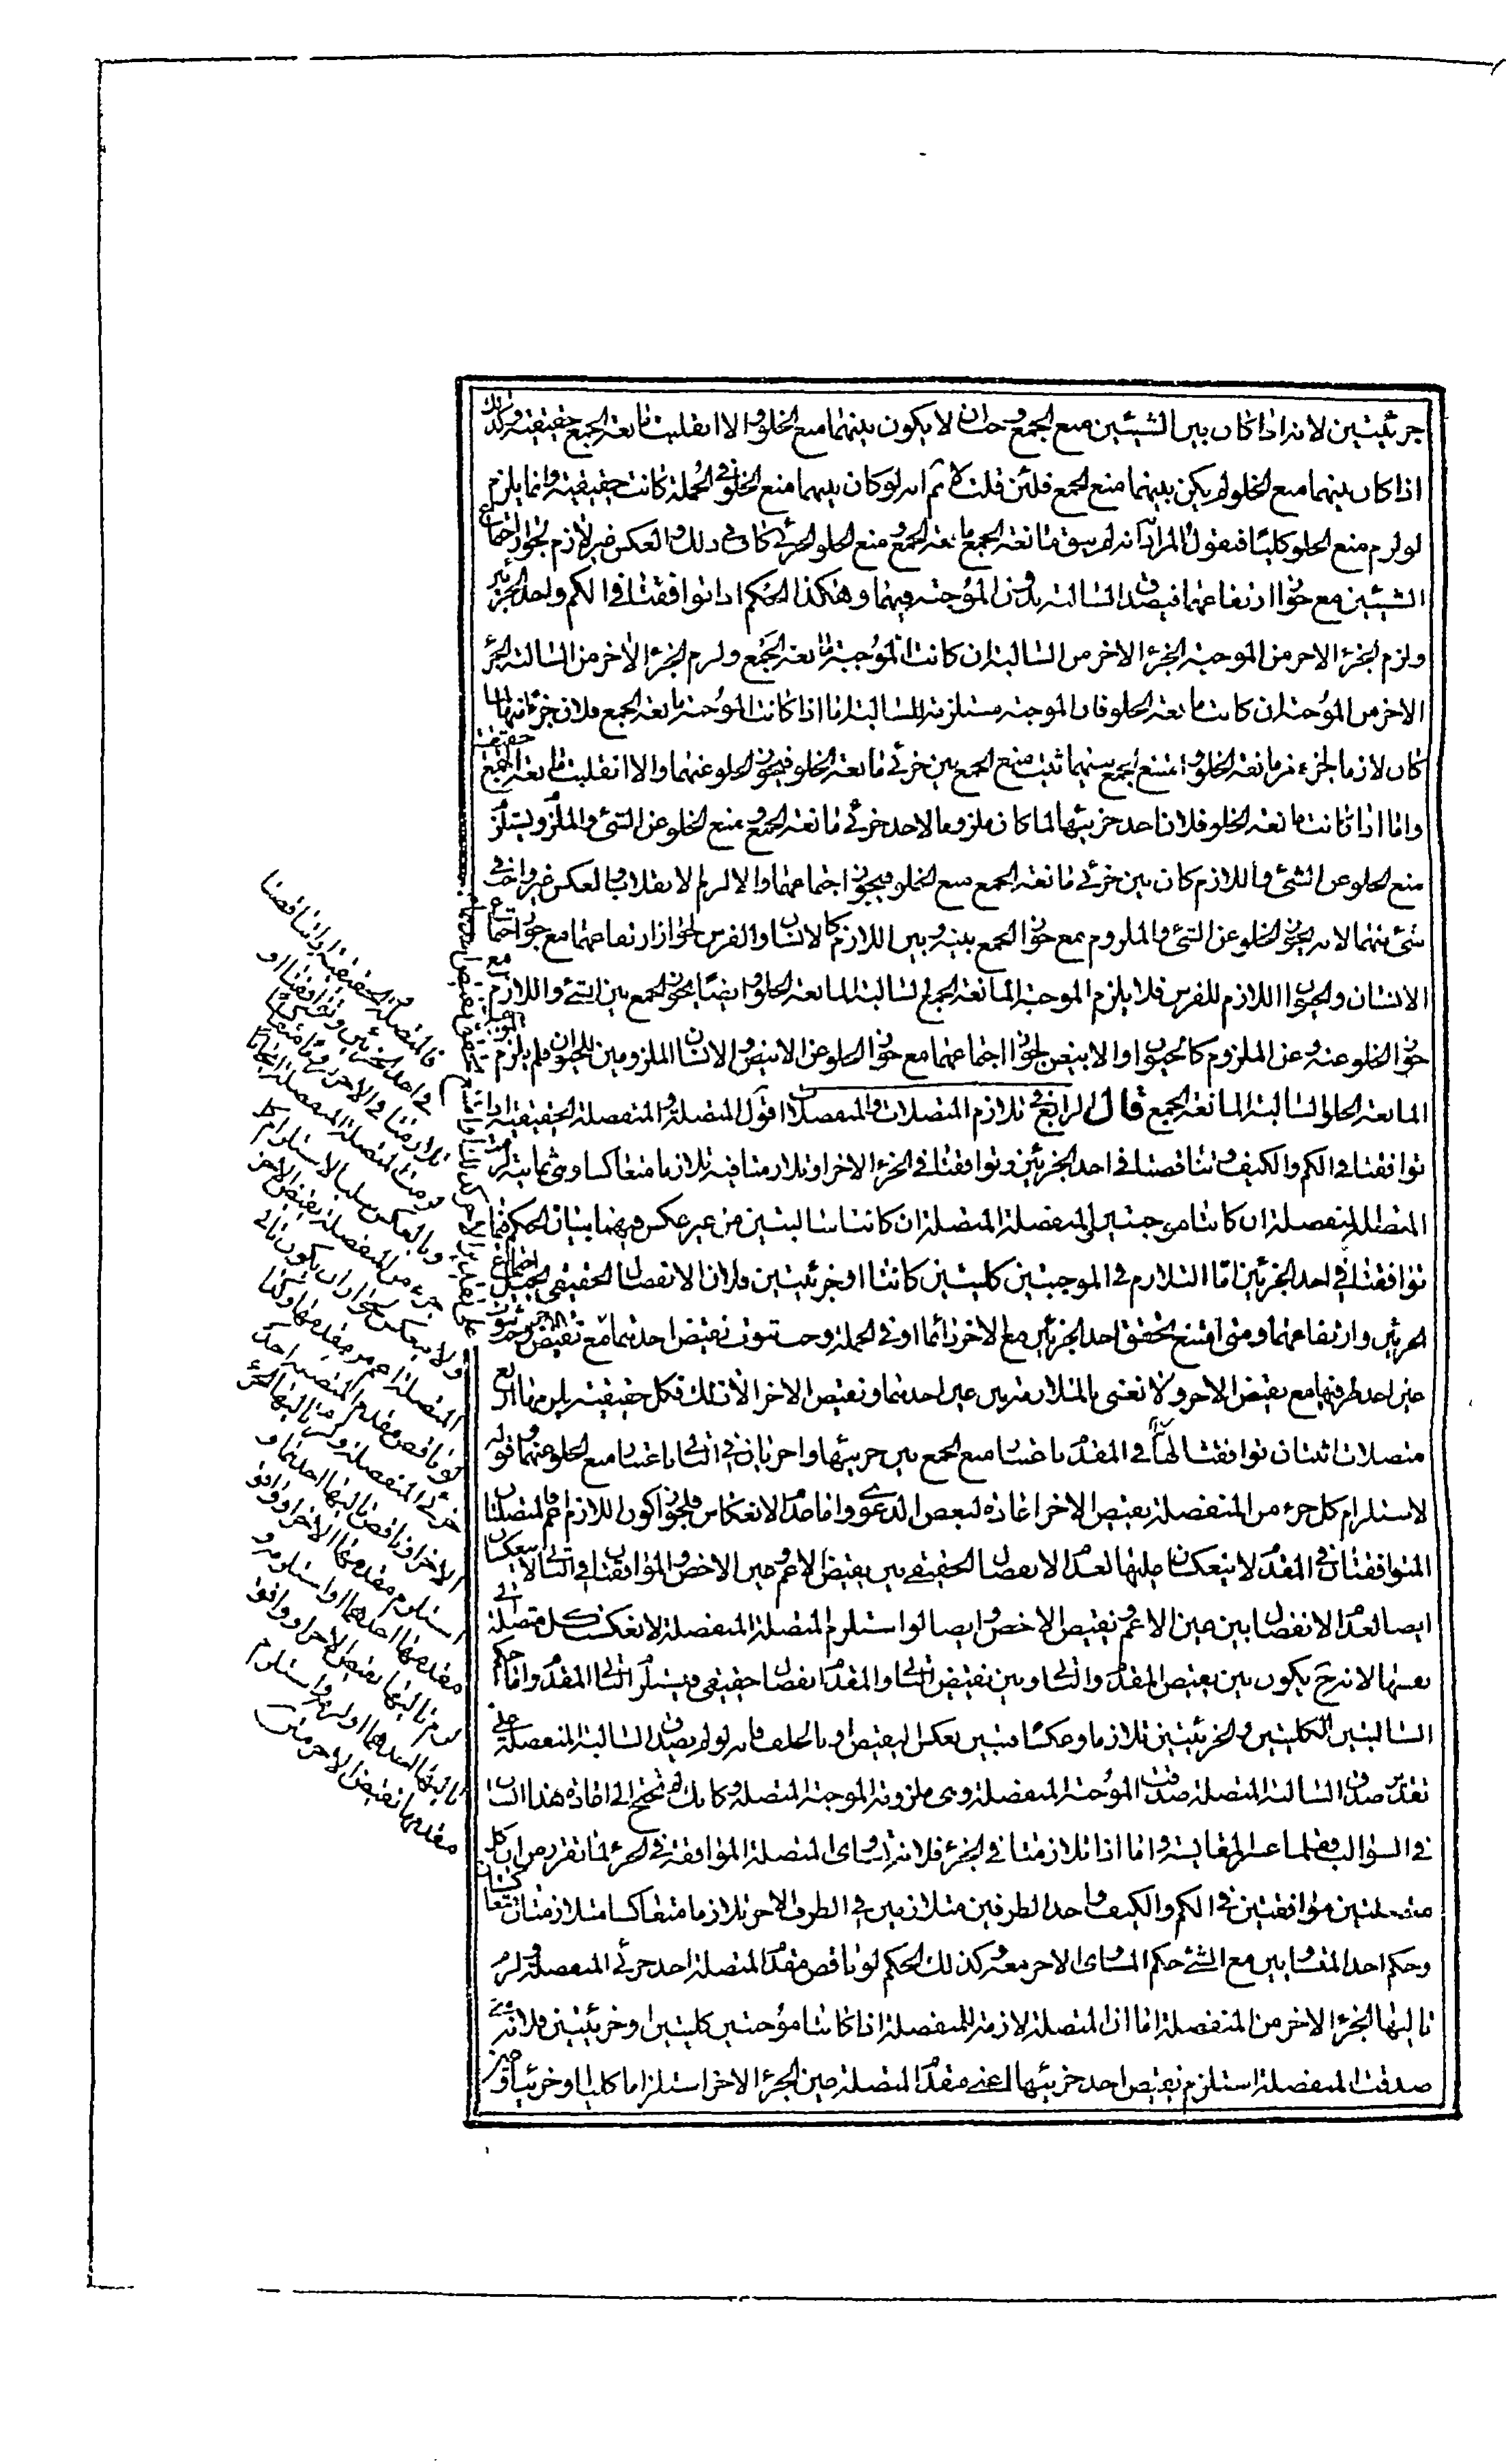 جزئيتين لانه اذا كان بين الشيئين منع الجمع وجب ان لا يكون بينهما منع الخلو والا انقلبت مانعة الجمع حقيقية وكذلك
اذا كان بينهما منع الخلو لم يكن بينهما منع الجمع فلئن قلت لانم انه لو كان بينهما منع الخلو في الجملة كانت حقيقية وانما يلزم
لو لزم منع الخلو كليا فنقول المراد انه لم يبق مانعة الجمع مانعة الجمع ومنع الخلو الجزئى كاف في ذلك والعكس غير لازم لجواز اجتماع
الشيئين مع جواز ارتفاعهما فيصدق السالبة بدون الموجبة فيهما وهكذا الحكم اذا توافقتا في الكم واحد الجزئين
ولزم الجزء الاخر من الموجبة الجزء الاخر من السالبة ان كانت الموجبة مانعة الجمع ولزم الجزء الاخر من السالبة الجزء
الاخر من الموجبة ان كانت مانعة الخلو فان الموجبة مستلزمة للسالبة اما اذا كانت الموجبة مانعة الجمع فلان جزءا منها لما
كان لازما لجزء من مانعة الخلو وامتنع الجمع بينهما ثبت منع الجمع بين جزئى مانعة الخلو فيجوز الخلو عنهما والا انقلبت مانعة الجمع حقيقية
واما اذا كانت مانعة الخلو فلان احد جزئيها لما كان ملزوما لاحد جزئى مانعة الجمع ومنع الخلو عن الشئ والملزوم يستلزم
منع الخلو عن الشئ واللازم كان بين جزئى مانعة الجمع منع الخلو فيجوز اجتماعهما والا لزم الانقلاب والعكس غير واجب في
شئ منهما لانه يجوز الخلو عن الشئ والملزوم مع جواز الجمع بينه وبين اللازم كالانسان والفرس لجواز ارتفاعهما مع جواز اجتماع
الانسان والحيوان اللازم للفرس فلا يلزم الموجبة المانعة الجمع لسالبة المانعة الخلو وايضا يجوز الجمع بين الشئ واللازم مع
جواز الخلو عنه وعن الملزوم كالحيوان والابيض لجواز اجتماعهما مع جواز الخلو عن الابيض والانسان الملزومين للحيوان فلم يلزم الموجبة
المانعة الخلو السالبة المانعة الجمع قال الرابع في تلازم المتصلات والمنفصلات اقول المتصلة والمنفصلة الحقيقية اذا
توافقتا في الكم والكيف وتناقضتا في احد الجزئين وتوافقتا في الجزء الاخر او تلازمتا فيه تلازما متعاكسا وهى ثمانية لزمت
المتصلة المنفصلة ان كانتا موجبتين والمنفصلة المتصلة ان كانتا سالبتين من غير عكس فيهما بيان الحكم فيما
توافقتا في احد الجزئين اما التلازم في الموجبتين كليتين كانتا او جزئيتين فلان الانفصال الحقيقى يمنع اجتماع
الجزئين وارتفاعهما ومتى امتنع تحقق احد الجزئين مع الاخر دائما او في الجملة وجب ثبوت نقيض احدهما مع
عين احد طرفيها مع نقيض الاخر ولا نعنى بالملازمة بين عين احدهما ونقيض الاخر الا ذلك فكل حقيقية يلزمها اربع
متصلات ثنتان توافقتا لها في المقدم باعتبار منع الجمع بين جزئيها واخريان في التالى باعتبار منع الخلو عنهما وقوله
لاستلزام كل جزء من المنفصلة نقيض الاخر اعادة لبعض الدعوى واما عدم الانعكاس فلجواز كون اللازم اعم فالمتصلتان
المتوافقتان في المقدم لا ينعكسان عليها لعدم الانفصال الحقيقى بين نقيض الاعم وعين الاخص والموافقتان في التالى لا ينعكسان
ايضا لعدم الانفصال بين عين الاعم ونقيض الاخص وايضا لو استلزم المتصلة المنفصلة لانعكست كل متصلة الى
نفسها لانه ح يكون بين نقيض المقدم والتالى او بين نقيض التالى والمقدم انفصال حقيقى فيستلزم التالى المقدم واما حكم
السالبتين الكليتين والجزئيتين تلازما وعكسا فتبين بعكس النقيض او بالخلف فانه لو لم يصدق السالبة المنفصلة على
تقدير صدق السالبة المتصلة صدقت الموجبة المنفصلة وهى ملزومة الموجبة المتصلة وكانك لم تحتج الى اعادة هذا البيان
في السوالب واما اذا تلازمتا في الجزء فلانه تساوى المتصلة الموافقة في الجزء لما تقرر من ان كل
متصلتين متوافقتين في الكم والكيف واحد الطرفين متلازمين في الطرف الاخر تلازما متعاكسا متلازمتان متعاكستان
وحكم احد المتساويين مع الشئ حكم المساوى الاخر معه وكذلك الحكم لو ناقض مقدم المتصلة احد جزئى المنفصلة ولزم
تاليها الجزء الاخر من المنفصلة اما ان المتصلة لازمة للمنفصلة اذا كانتا موجبتين كليتين او جزئيتين فلانه متى
صدقت المنفصلة استلزم نقيض احد جزئيها اعنى مقدم المتصلة عين الجزء الاخر استلزاما كليا او جزئيا وعين
فالمتصلة والحقيقية اذا تناقضتا
في احد الجزئين وتوافقتا او
تلازمتا في الاخر
لزمت المتصلة المنفصلة ايجابا
وبالعكس سلبا لاستلزام كل
جزء من المنفصلة نقيض الاخر
ولا ينعكس لجواز ان يكون تالى
المتصلة اعم من مقدمها وكذا
لو ناقض مقدم المتصلة احد
جزئى المنفصلة ولزم تاليها الجزء
الاخر او ناقض تاليها احدهما و
استلزم مقدمها الاخر او وافق
مقدمها احدهما او استلزمه و
لزم تاليها نقيض الاخر او وافق
تاليها احدهما او لزمه واستلزم
مقدمها نقيض الاخر متن